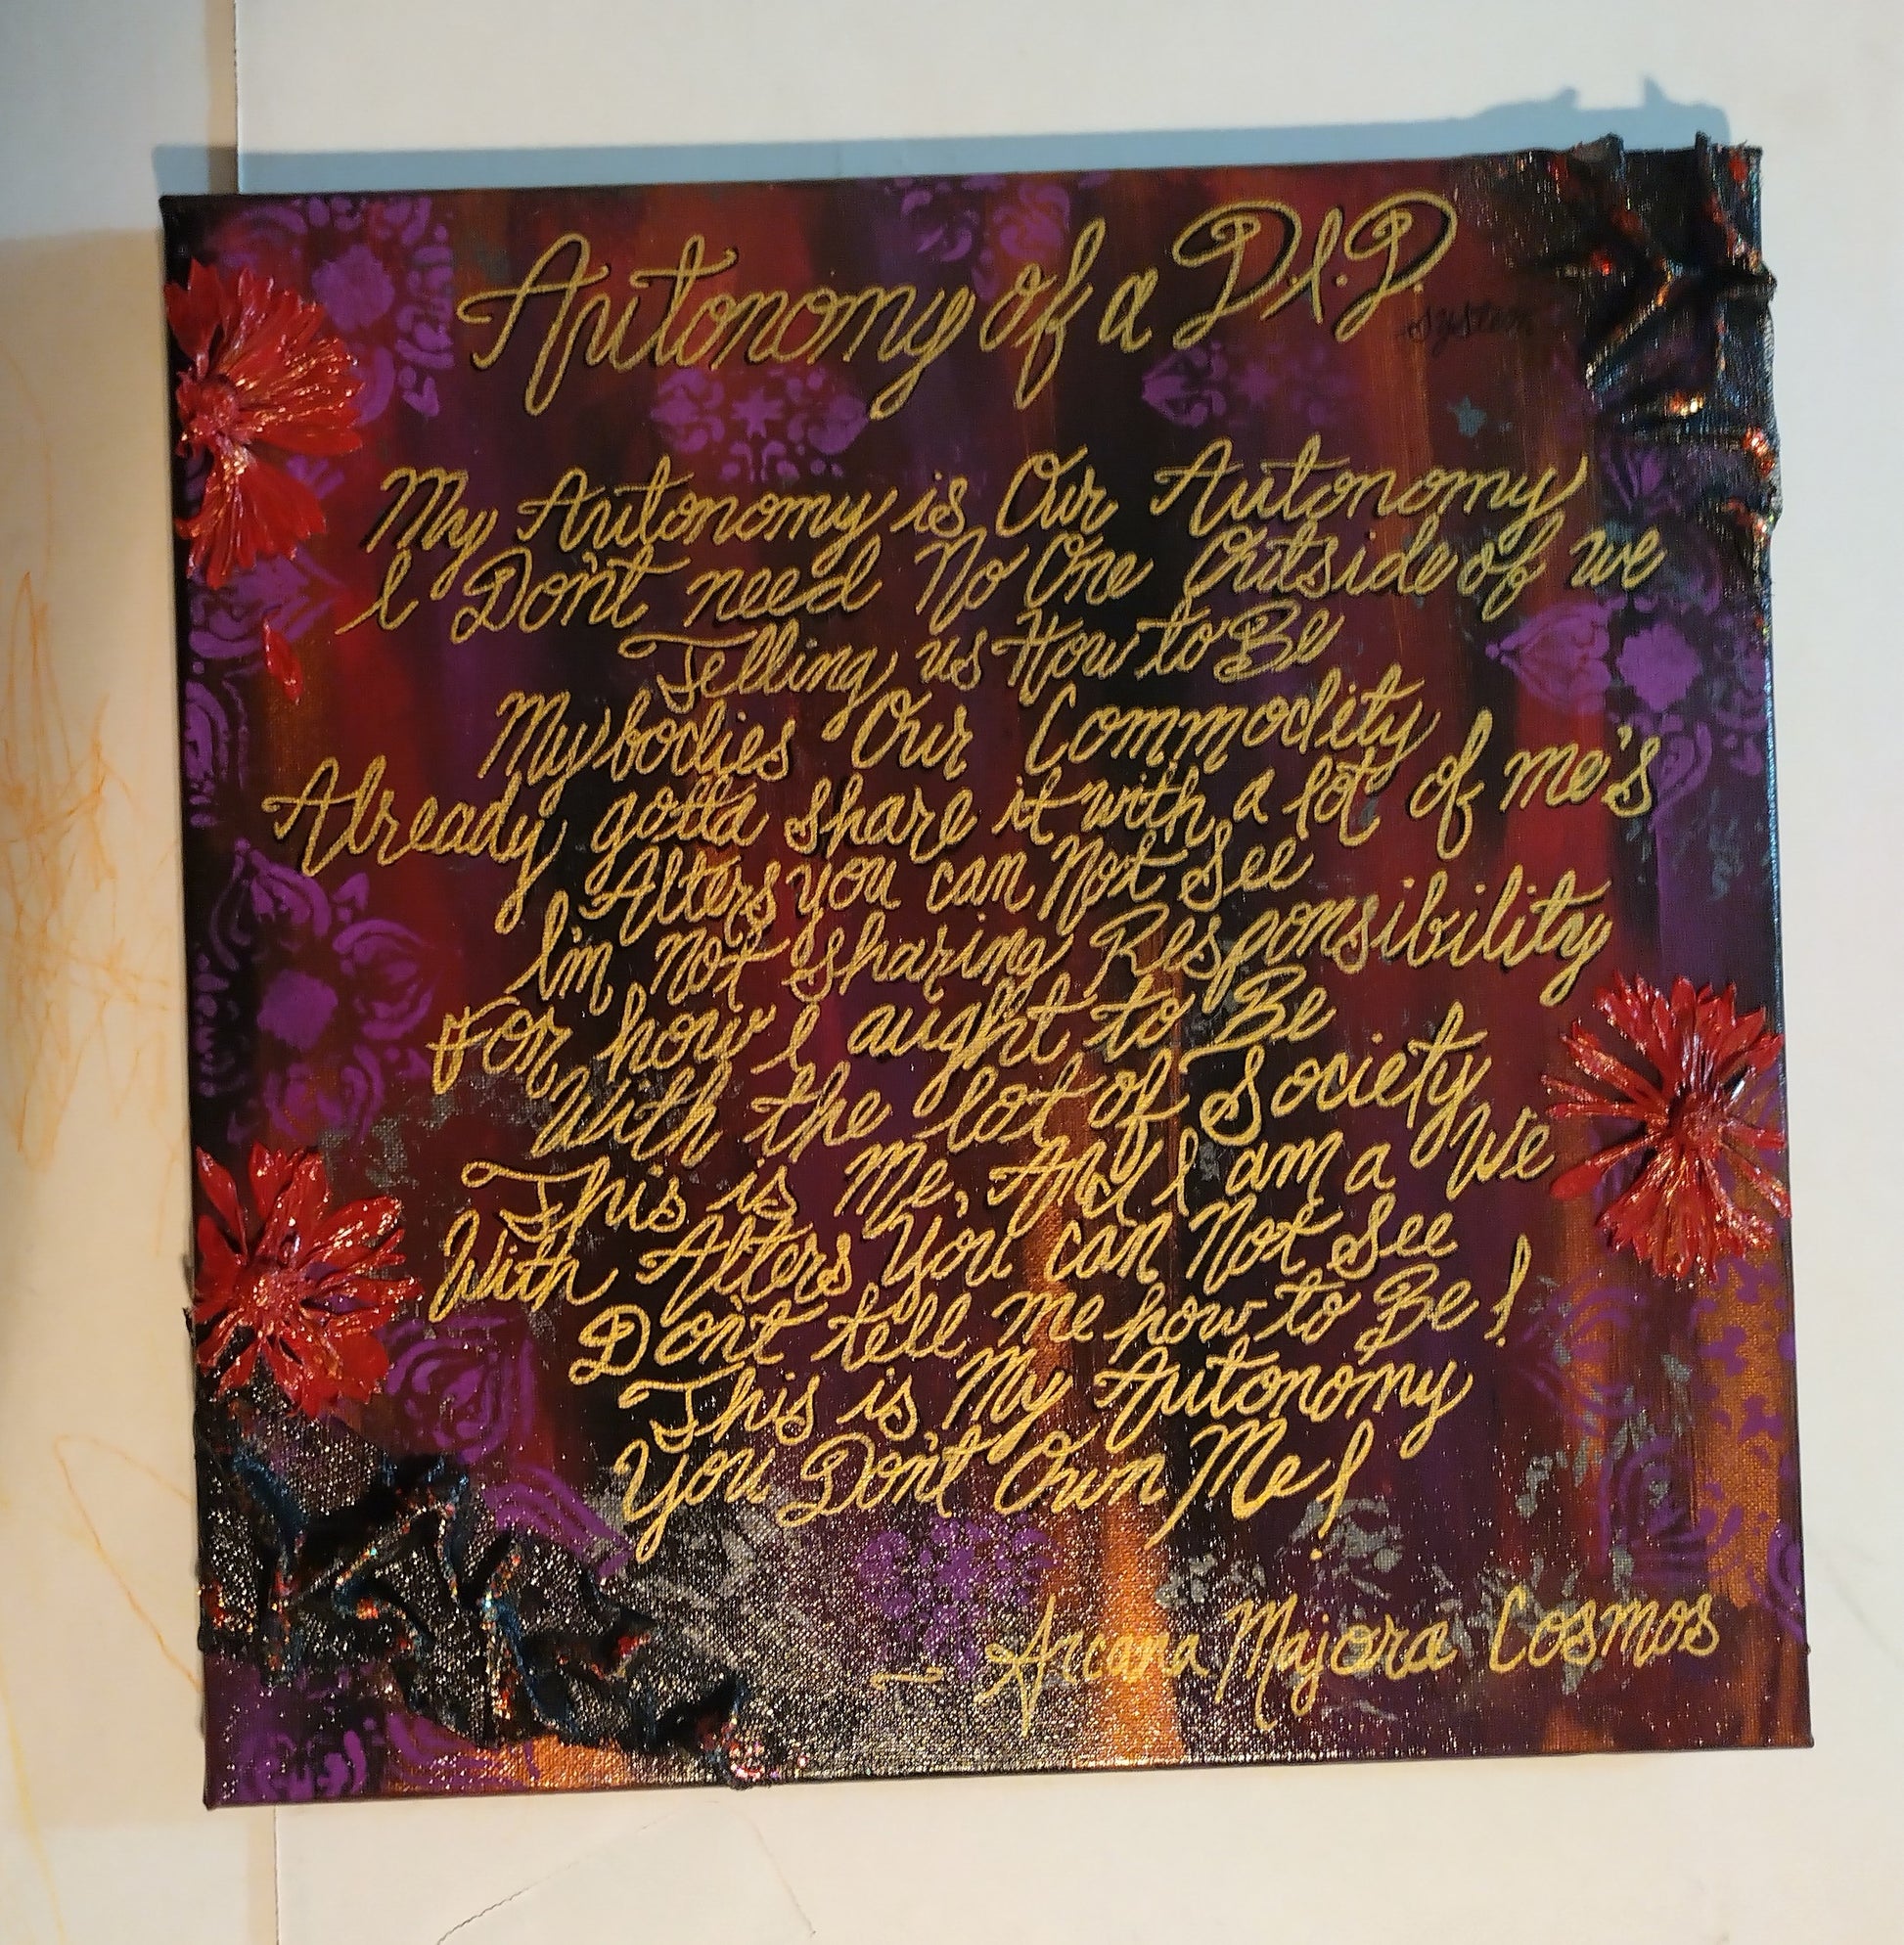 Autonomy of a D.I.D.
system
My Autonomy is Our Autonomy
I Don't need No One Outside of we
Telling us How to Be
My bodies Our Commodity
Already gotta share it with a lot of me's
Alters you can Not See
I'm not sharing Responsibility
For how I aught to Be
With the lot of Society
This is Me, And I am a We
With Alters You can Not See
Don't tell me how to Be!
This is My Autonomy
You Don't Own Me!
- Arcana Majora Cosmos